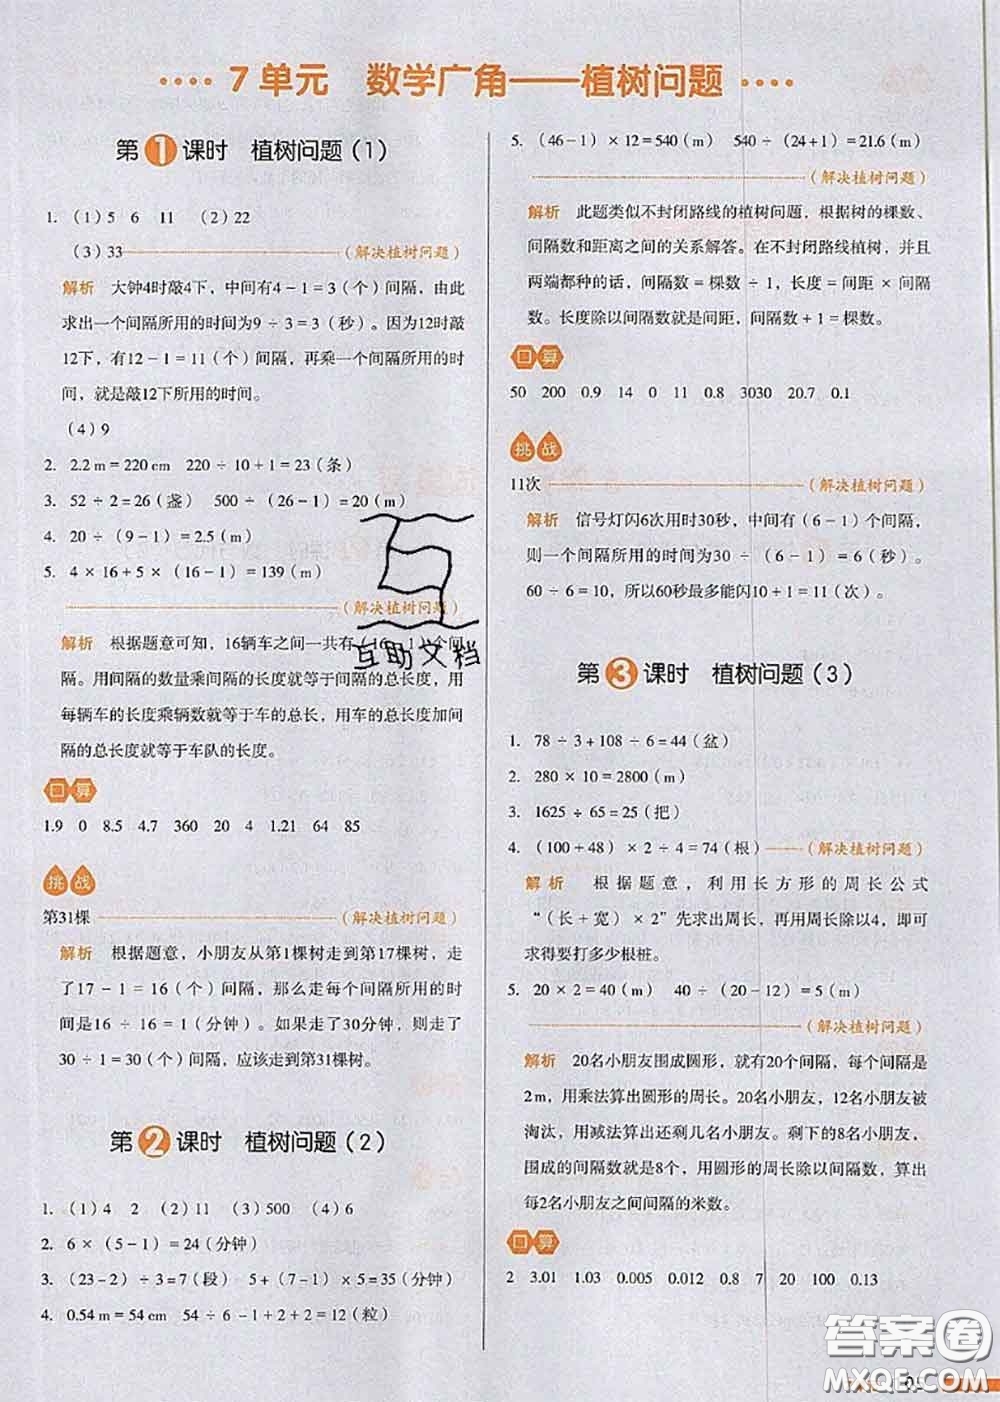 7单元 数学广角——植树问题
第1课时 植树问题（1）
1.（1）5 6 11 （2）22
（3）33（解决植树问题）
解析 大钟4时敲4下，中间有4－1＝3（个）间隔，由此
求出一个间隔所用的时间为9÷3＝3（秒）。因为12时敲
12下，有12－1＝11（个）间隔，再乘一个间隔所用的时
间，就是敲12下所用的时间。
（4）9
2. 2.2 m＝220 cm 220÷10＋1＝23（条）
3. 52÷2＝26（盏） 500÷（26－1）＝20（m）
4. 20÷（9－1）＝2.5（m）
5. 4×16＋5×（16－1）＝139（m）
（解决植树问题）
解析 根据题意可知，16辆车之间一共有（16－1）个间
隔。用间隔的数量乘间隔的长度就等于间隔的总长度，用
每辆车的长度乘辆数就等于车的总长，用车的总长度加间
隔的总长度就等于车队的长度。
口算
1.9 0 8.5 4.7 360 20 4 1.21 64 85
挑战
第31棵（解决植树问题）
解析 根据题意，小朋友从第1棵树走到第17棵树，走
了17－1＝16（个）间隔，那么走每个间隔所用的时
间是16÷16＝1（分钟）。如果走了30分钟，则走了
30÷1＝30（个）间隔，应该走到第31棵树。
第2课时 植树问题（2）
1.（1）4 2 （2）11 （3）500 （4）6
2. 6×（5－1）＝24（分钟）
3.（23－2）÷3＝7（段） 5＋（7－1）×5＝35（分钟）
4. 0.54 m＝54 cm 54÷6－1＋2＋2＝12（粒）
5.（46－1）×12＝540（m） 540÷（24＋1）＝21.6（m）
（解决植树问题）
解析 此题类似不封闭路线的植树问题，根据树的棵数、
间隔数和距离之间的关系解答。在不封闭路线植树，并且
两端都种的话，间隔数＝棵数÷1，长度＝间距×间隔
数。长度除以间隔数就是间距，间隔数＋1＝棵数。
口算
50 200 0.9 14 0 11 0.8 3030 20.7 0.1
挑战
11次（解决植树问题）
解析 信号灯闪6次用时30秒，中间有（6－1）个间隔，
则一个间隔所用的时间为30÷（6－1）＝6（秒）。
60÷6＝10，所以60秒最多能闪10＋1＝11（次）。
第3课时 植树问题（3）
1. 78÷3＋108÷6＝44（盆）
2. 280×10＝2800（m）
3. 1625÷65＝25（把）
4.（100＋48）×2÷4＝74（根）（解决植树问题）
解析 根据题意，利用长方形的周长公式
“（长＋宽）×2”先求出周长，再用周长除以4，即可
求得要打多少根桩。
5. 20×2＝40（m） 40÷（20－12）＝5（m）
（解决植树问题）
解析 20名小朋友围成圆形，就有20个间隔，每个间隔是
2 m，用乘法算出圆形的周长。20名小朋友，12名小朋友被
淘汰，用减法算出还剩几名小朋友。剩下的8名小朋友，
围成的间隔数就是8个，用圆形的周长除以间隔数，算出
每2名小朋友之间间隔的米数。
口算
2 3.01 1.03 0.005 0.012 0.8 7 20 100 0.13
互助文档
答案圈
MXQE.COM